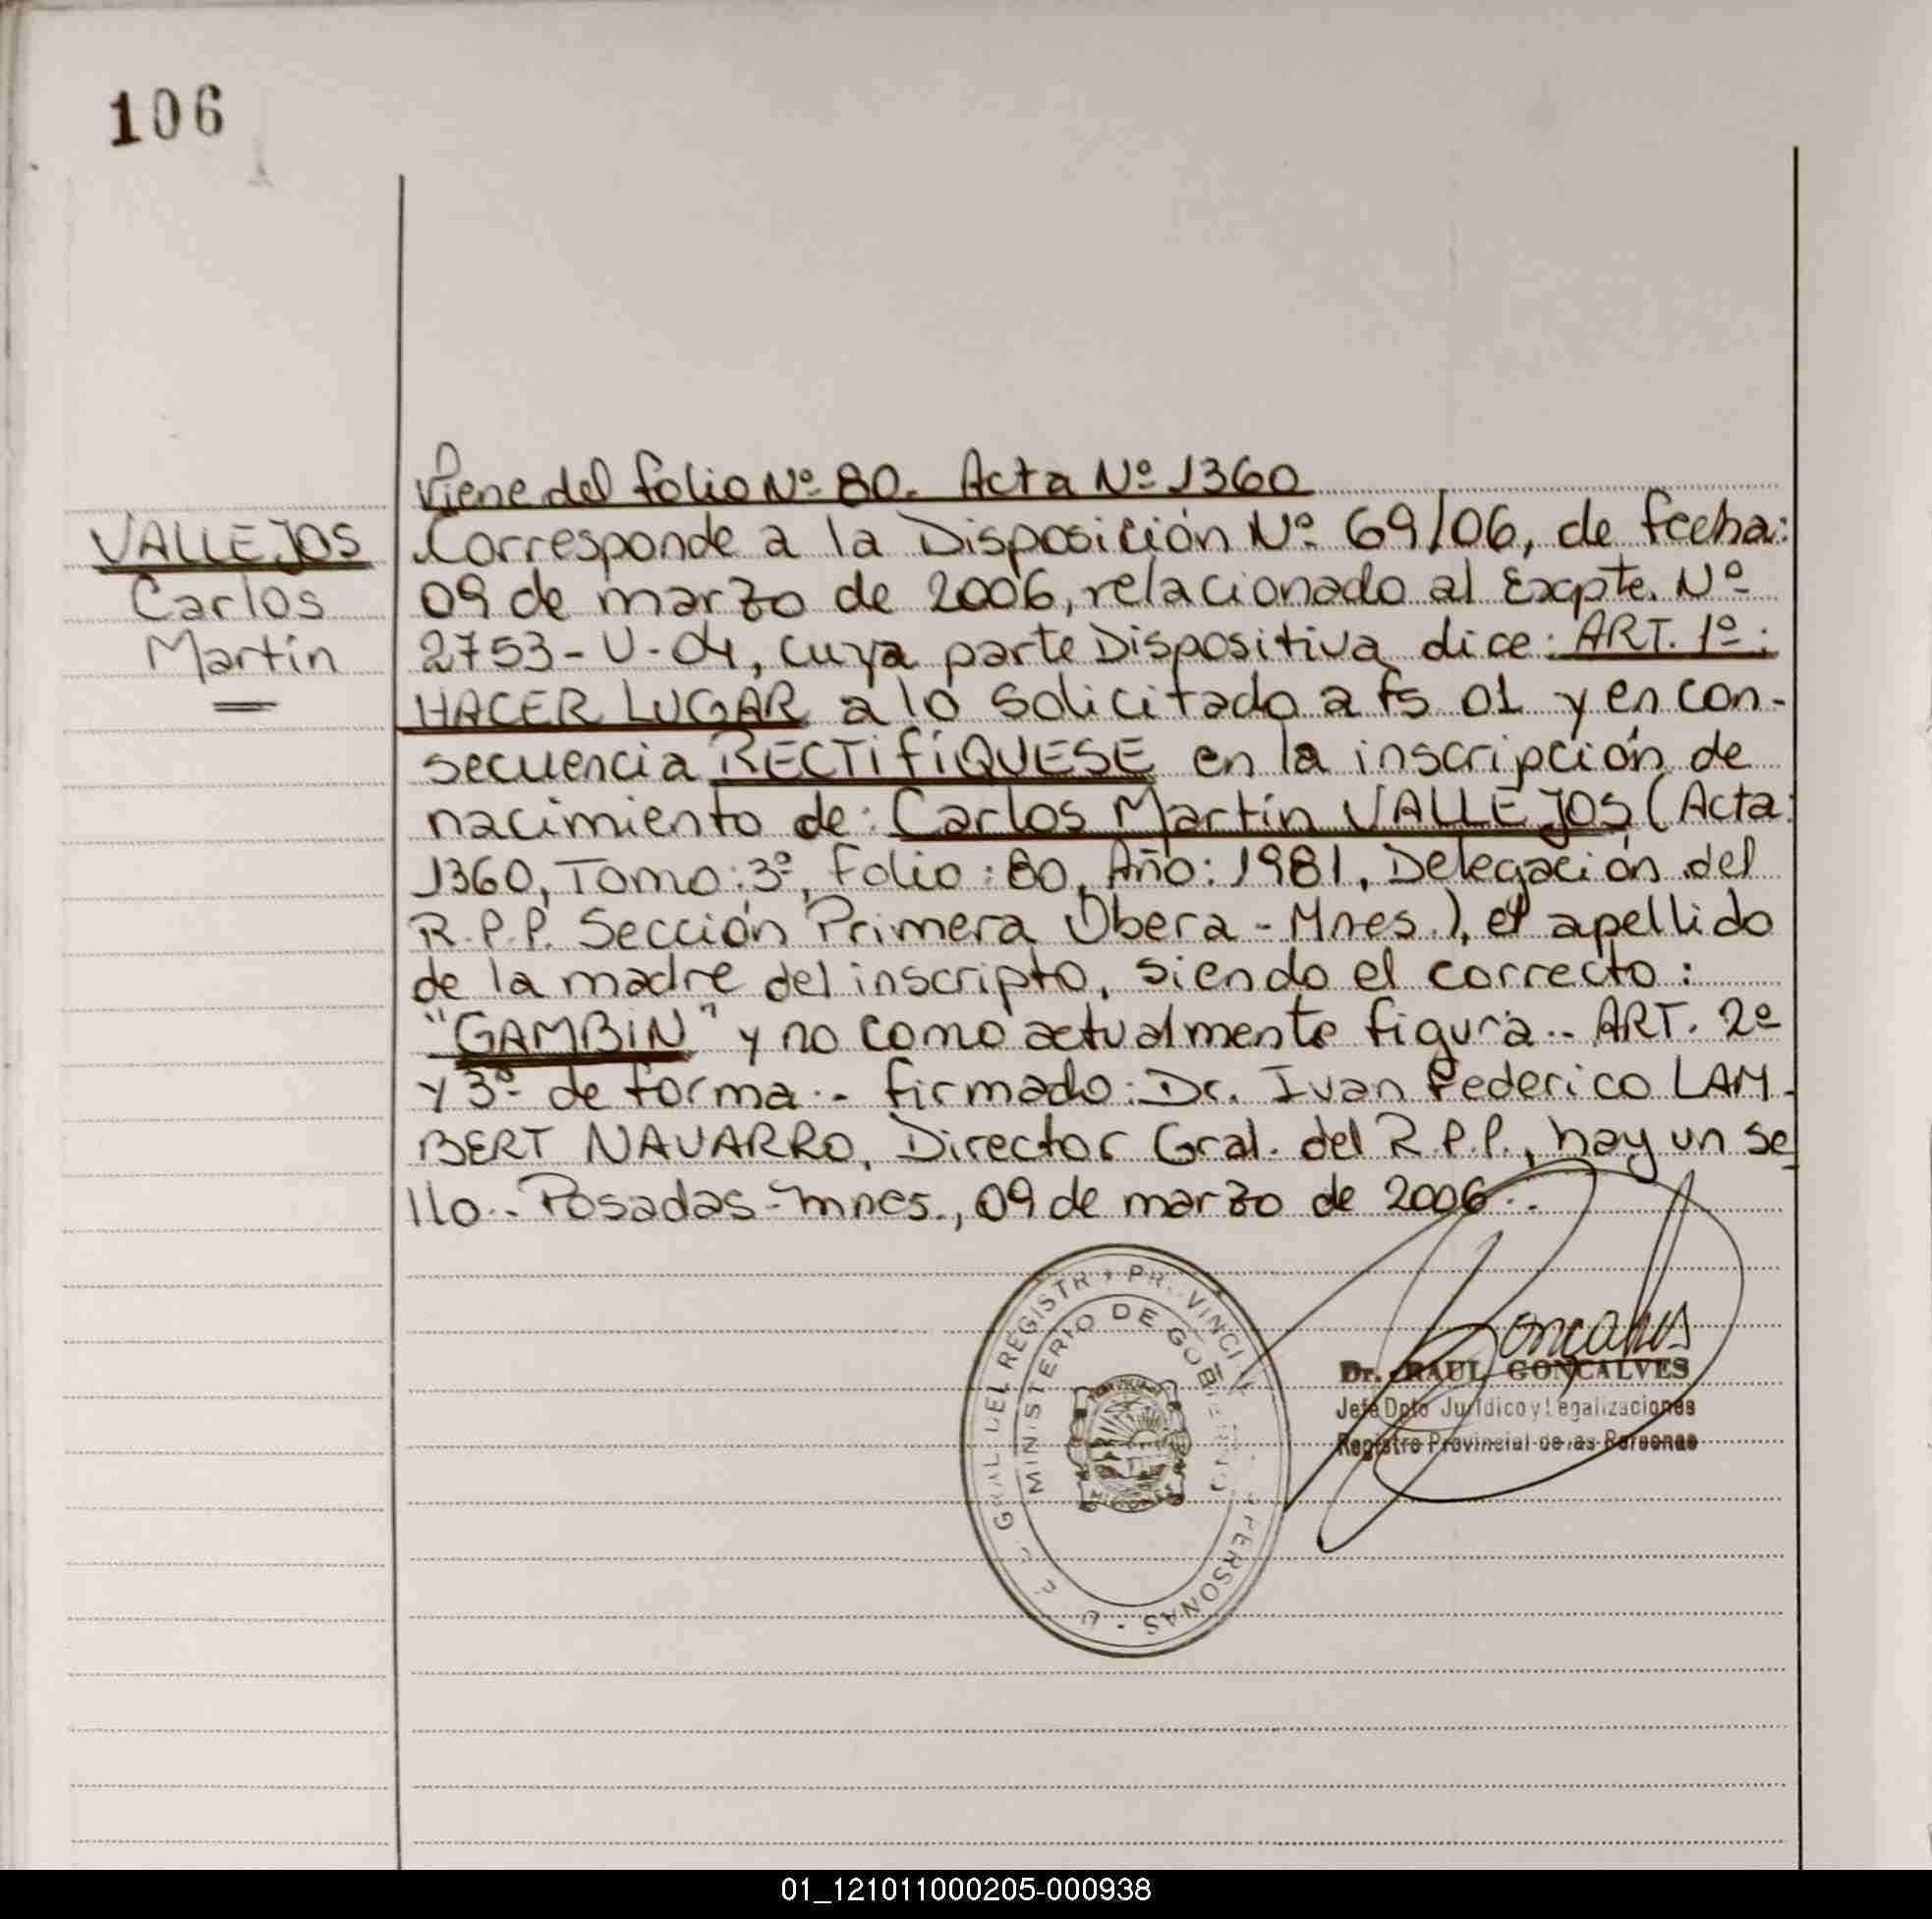 106
VALLEJOS
Carlos
Martín
Viene del folio Nº 80. Acta Nº 1360
Corresponde a la Disposición Nº 69/06, de fecha:
09 de marzo de 2006, relacionado al Expte. Nº
2753-U-04, cuya parte Dispositiva dice: ART. 1º:
HACER LUGAR a lo solicitado a fs 01 y en con-
secuencia RECTIFÍQUESE en la inscripción de
nacimiento de: Carlos Martín VALLEJOS (Acta:
1360, Tomo: 3º, Folio: 80, Año: 1981, Delegación del
R.P.P. Sección Primera Obera - Mnes.), el apellido
de la madre del inscripto, siendo el correcto:
"GAMBIN" y no como actualmente figura.- ART. 2º
y 3º de forma.- firmado: Dr. Ivan Federico LAM-
BERT NAVARRO, Director Gral. del R.P.P., hay un se
llo.- Posadas-mnes., 09 de marzo de 2006.-
GRAL DEL REGISTR PROVINCI PERSONAS
MINISTERIO DE GOBIERNO
MISIONES
Goncalves
Dr. RAUL GONCALVES
Jefe Dpto Jurídico y Legalizaciones
Registro Provincial de las Personas
01_121011000205-000938